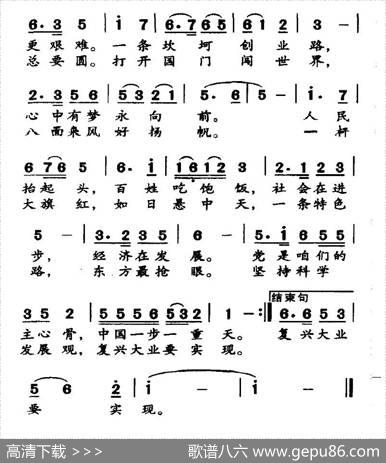 6· 3 5 | i 7 | 6·765 | 6 1 2 | 3 - |
更艰难。一条坎坷创业路，
总要圆。打开国门闯世界，
2·3 5 5 | 5 3 2 1 | 5· 6 | 5 - | i· 7 |
心中有梦永向前。人民
八面来风好扬帆。一杆
6 7 6 5 | 6· i | 1 6 1 2 | 3 - | 2· 1 2 3 |
抬起头，百姓吃饱饭，社会在进
大旗红，如日悬中天，一条特色
5 - | 3·2 3 5 | 1 | 6 - | 6·i 5 5 |
步，经济在发展。党是咱们的
路，东方最抢眼。坚持科学
结束句
3 5 2 | 5 5 5 6 5 3 2 | 1 - :‖ 6·6 5 3 |
主心骨，中国一步一重天。复兴大业
发展观，复兴大业要实现。
5 6 2 | i - | i - ‖
要实现。
高清下载 >>>
歌谱八六 www.gepu86.com